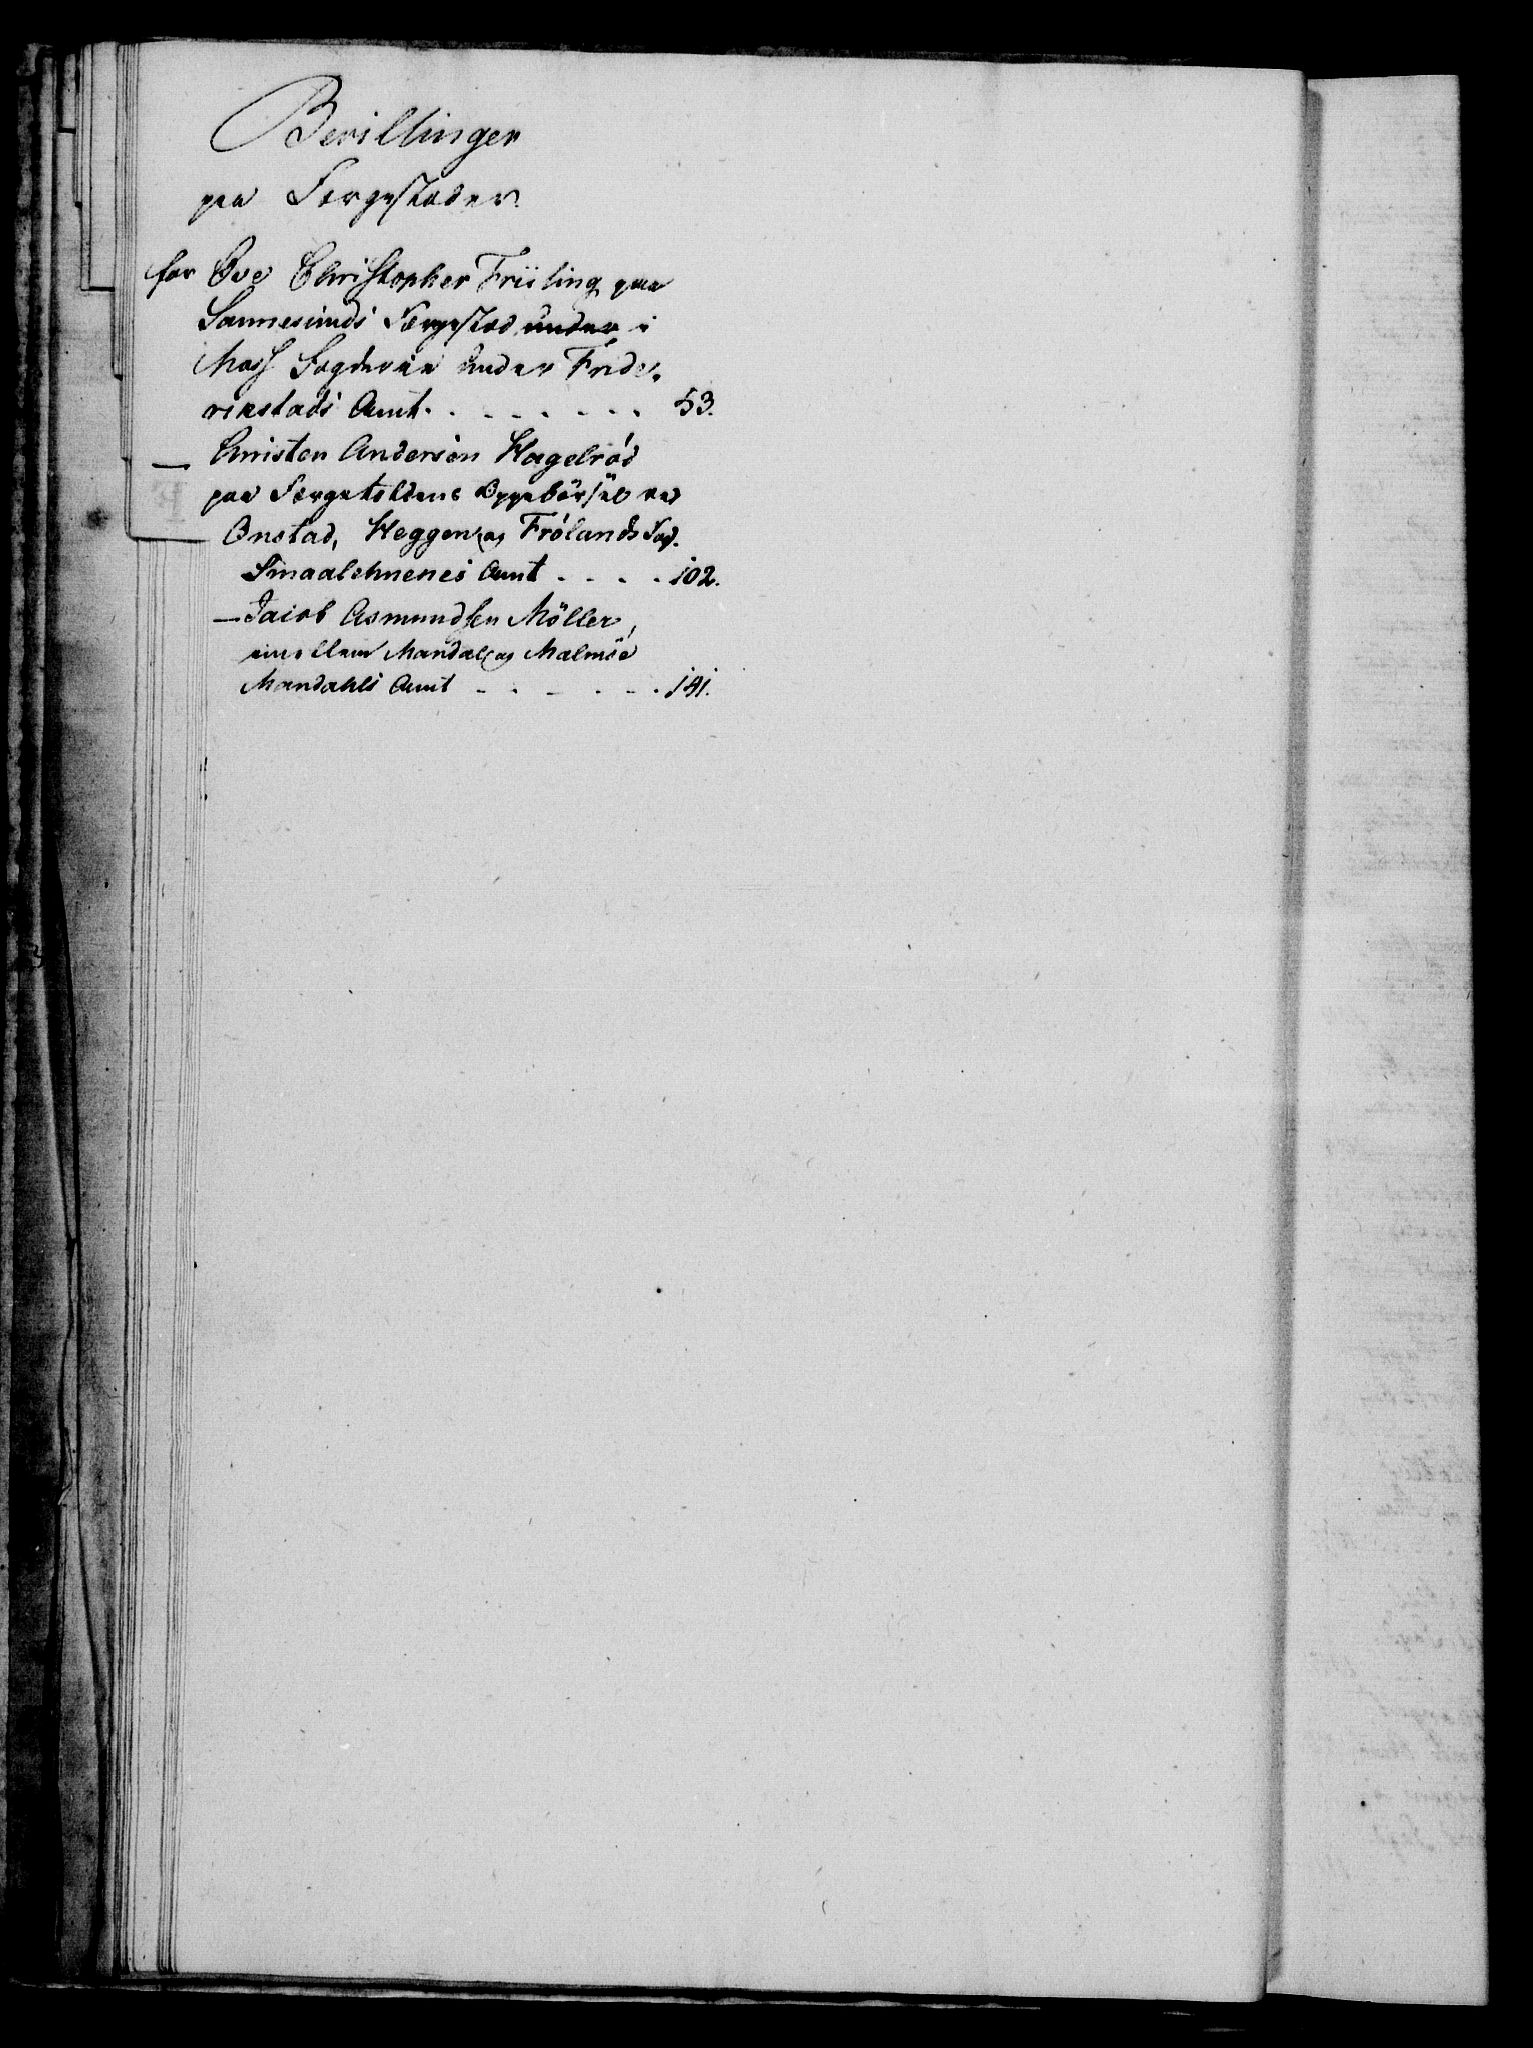 Bevillinger
paa Færgestæder
for Ove Christopher Friisling paa
Sannesunds Færgestæd under i
Moss Fogderie under Fride-
rikstads Amt. . . . . . . . 53.
— Christen Andersen Hagelröd
paa Færgetoldens Oppebörsel ved
Onstad, Heggen og Frölands Fog.
Smaalehnenes Amt . . . . 102.
— Jacob Asmundsen Möller,
imellem Mandal og Malmöe
Mandahls Amt . . . . . . 141.